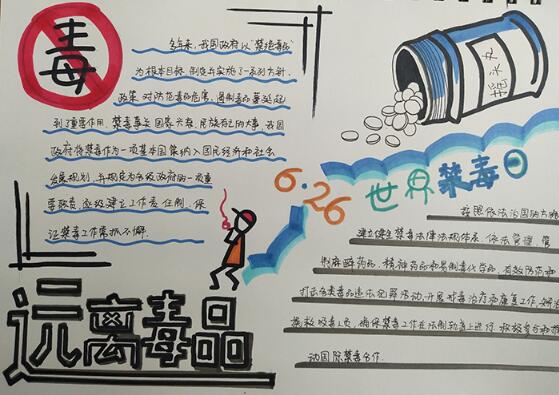 毒
多年来，我国政府以"禁绝毒品"
为根本目标，制定并实施了一系列方针
政策，对防范毒品危害、遏制毒品蔓延起
到了重要作用，禁毒事关国家兴衰，民族存亡的大事，我国
政府将禁毒作为一项基本国策纳入国民经济和社会
发展规划，并规定为各级政府的一项重
要职责，逐级建立工作责任制，保
证禁毒工作常抓不懈。
摇头丸
6·26
世界禁毒日
按照依法治国的方
建立健全禁毒法律法规体系，依法管理
制麻醉药品，精神药品和易制毒化学品，有效防范和
打击各类毒品违法犯罪活动，开展戒毒治疗和康复工作，
挽救吸毒人员，确保禁毒工作在法制轨道上进行，积极参与和
动国际禁毒合作。
远离毒品